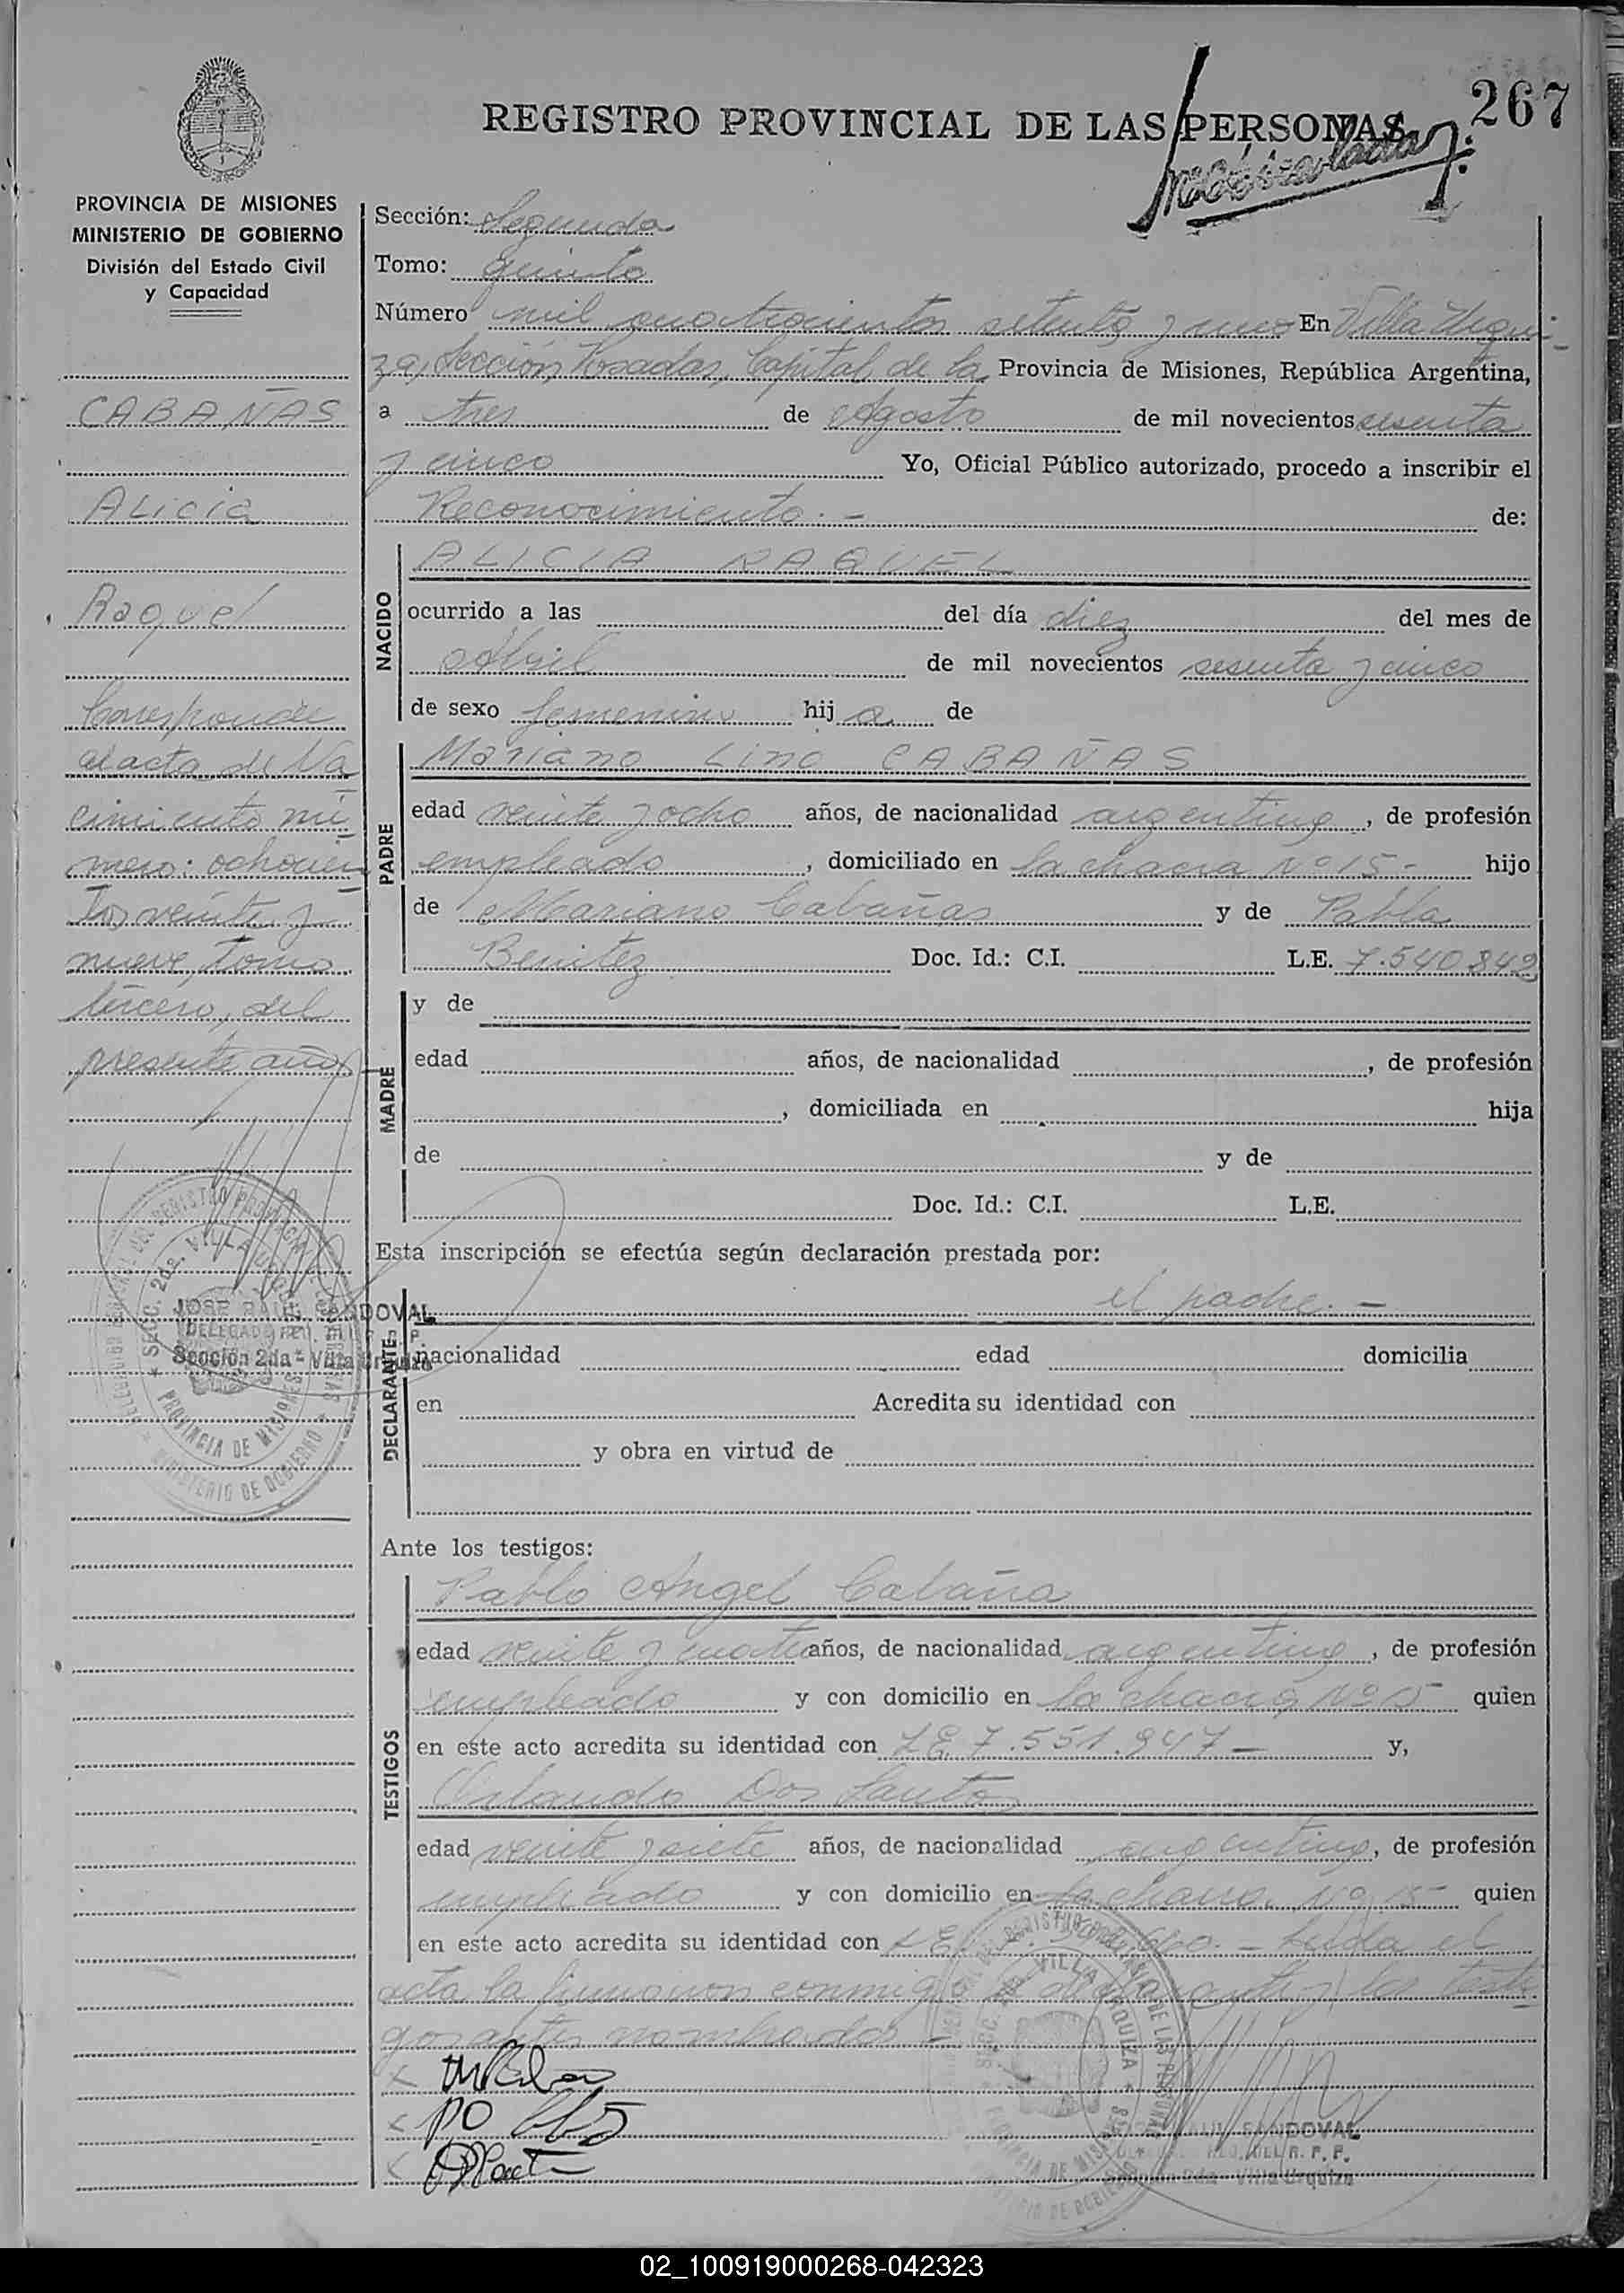 267
REGISTRO PROVINCIAL DE LAS PERSONAS
PROVINCIA DE MISIONES
MINISTERIO DE GOBIERNO
División del Estado Civil
y Capacidad
CABAÑAS
ALICIA
Raquel
Corresponde
al acta de Na
cimiento nú
mero: ochocien
tos veinte y
nueve, tomo
tercero, del
presente año
JOSE RAUL SANDOVAL
Sección 2da - Villa Urquiza
Sección: Segunda
Tomo: quinto
Número mil cuatrocientos setenta y uno En Villa Urqui-
za, Sección Posadas, Capital de la Provincia de Misiones, República Argentina,
a tres de Agosto de mil novecientos sesenta
y cinco Yo, Oficial Público autorizado, procedo a inscribir el
Reconocimiento.- de:
NACIDO
ALICIA RAQUEL
ocurrido a las del día diez del mes de
Abril de mil novecientos sesenta y cinco
de sexo femenino hija de
PADRE
Mariano Lino CABAÑAS
edad veinte y ocho años, de nacionalidad argentino, de profesión
empleado, domiciliado en la chacra Nº 15- hijo
de Mariano Cabañas y de Pabla
Benitez Doc. Id.: C.I. L.E. 7.540.842
MADRE
y de
edad años, de nacionalidad , de profesión
, domiciliada en hija
de y de
Doc. Id.: C.I. L.E.
Esta inscripción se efectúa según declaración prestada por:
DECLARANTE
el padre.-
nacionalidad edad domicilia
en Acredita su identidad con
y obra en virtud de
Ante los testigos:
TESTIGOS
Pablo Angel Cabaña
edad veinte y cuatro años, de nacionalidad argentino, de profesión
empleado y con domicilio en la chacra Nº 15 quien
en este acto acredita su identidad con LE. 7.551.947- y,
Orlando Dos Santos
edad veinte y siete años, de nacionalidad argentino, de profesión
empleado y con domicilio en la chacra Nº 15 quien
en este acto acredita su identidad con LE. - Leída el
acta la firmaron conmigo los testi
gos antes nombrados -
SANDOVAL
DEL R. P. P.
Villa Urquiza
02_100919000268-042323